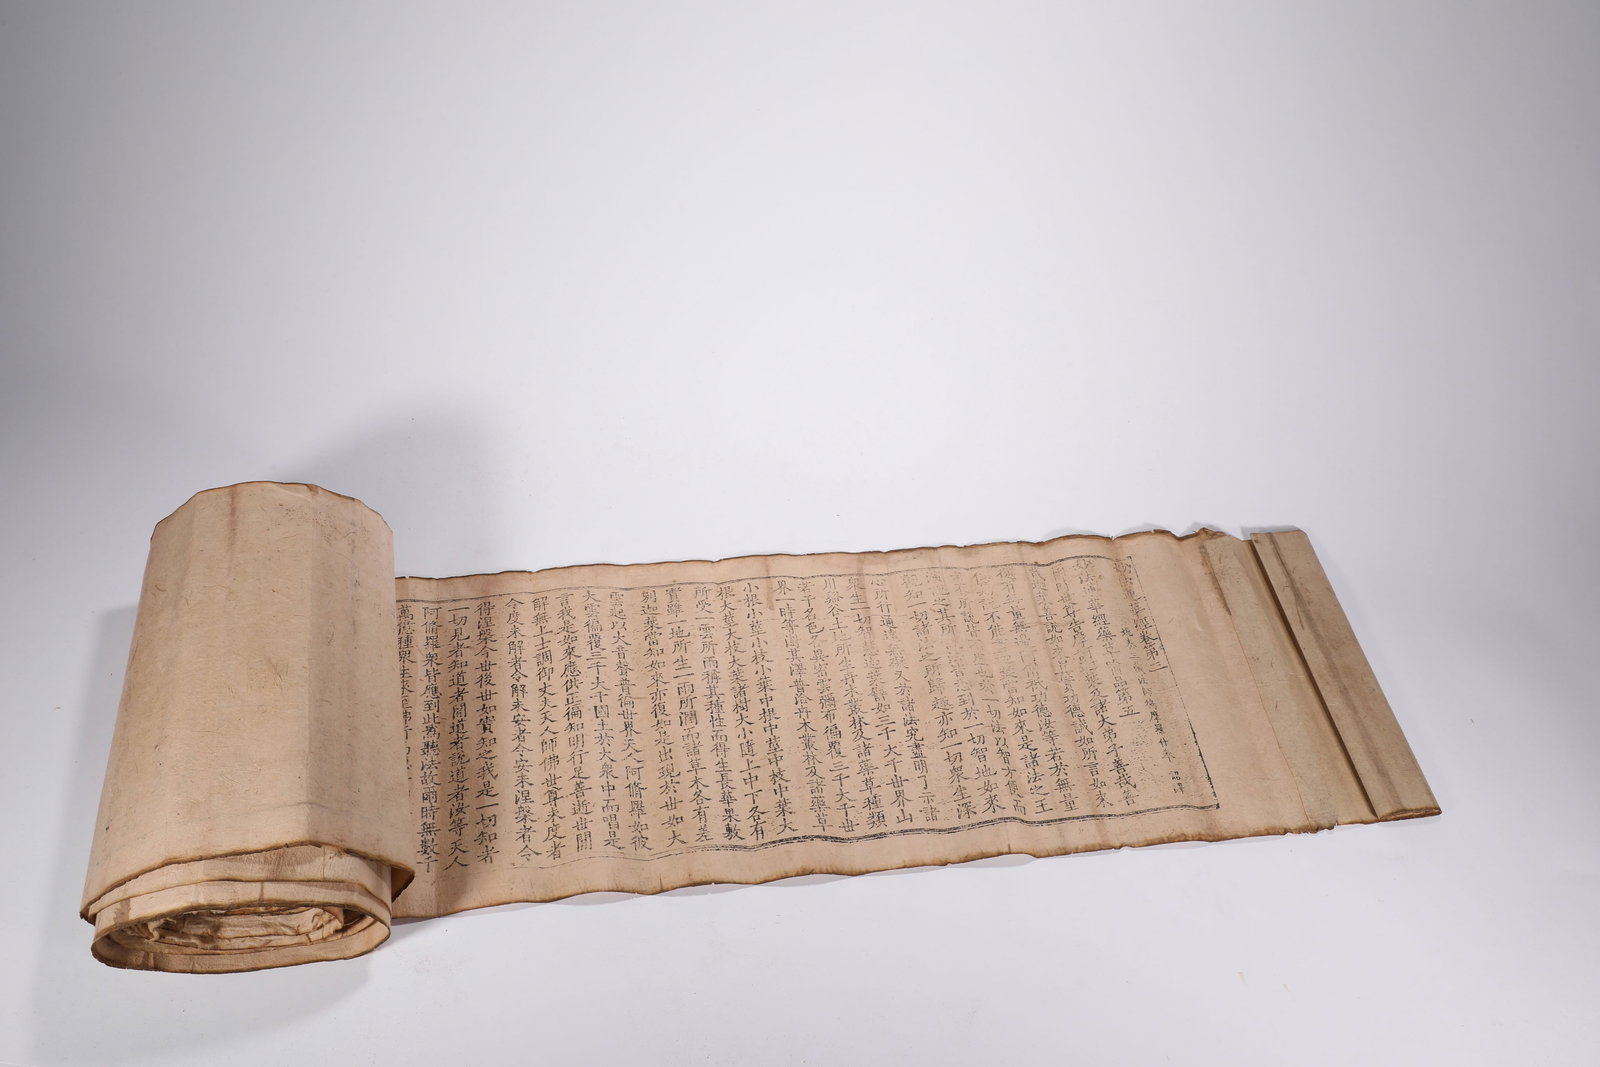 妙法蓮華經卷第三
妙法蓮華經藥草喻品第五
爾時世尊告摩訶迦葉及諸大弟子善哉善
迦葉善說如來真實功德誠如所言如來
無量無 德汝等若於無量
不能 當知如來是諸法之王
若 於一切法以智方便而
所說 到於一切智地如來
觀知一切諸法之所歸趣亦知一切衆生深
心所行通達無礙又於諸法究盡明了示諸
衆生一切智慧迦葉譬如三千大千世界山
川谿谷土地所生卉木叢林及諸藥草種類
若干名色各異密雲彌布徧覆三千大千世
界一時等澍其澤普洽卉木叢林及諸藥草
小根小莖小枝小葉中根中莖中枝中葉大
根大莖大枝大葉諸樹大小隨上中下各有
所受一雲所雨稱其種性而得生長華果敷
實雖一地所生一雨所潤而諸草木各有差
別迦葉當知如來亦復如是出現於世如大
雲起以大音聲普徧世界天人阿脩羅如彼
大雲徧覆三千大千國土於大衆中而唱是
言我是如來應供正徧知明行足善逝世間
解無上士調御丈夫天人師佛世尊未度者
令度未解者令解未安者令安未涅槃者令
得涅槃今世後世如實知之我是一切知者
一切見者知道者開道者說道者汝等天人
阿脩羅衆皆應到此爲聽法故爾時無數千
萬億種衆生來至佛所